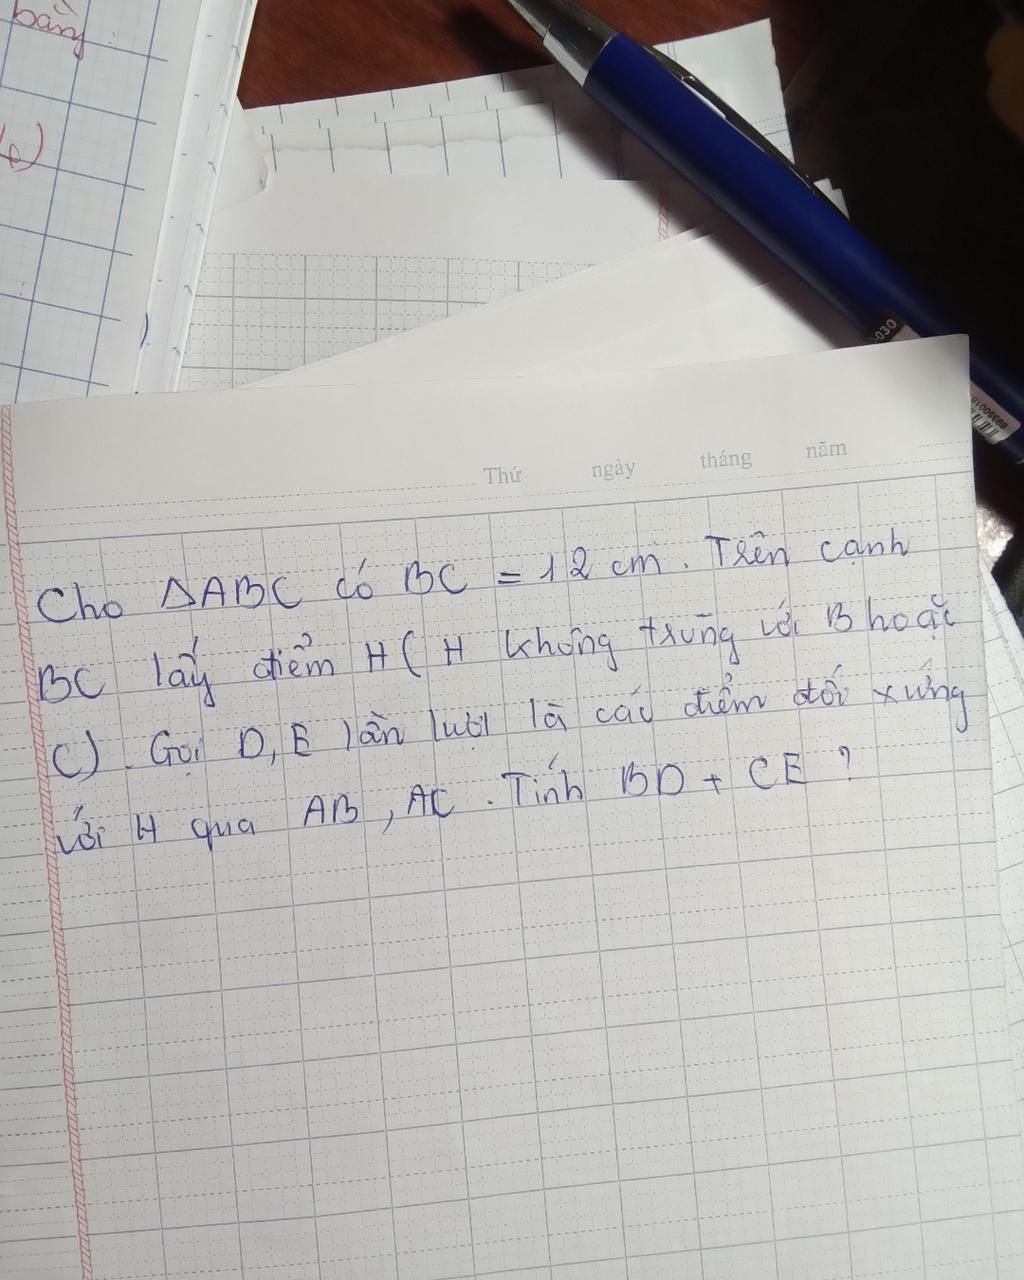 bằng:
Thứ ngày tháng năm
Cho ΔABC có BC = 12 cm. Trên cạnh
BC lấy điểm H ( H không trùng với B hoặc
C). Gọi D, E lần lượt là các điểm đối xứng
với H qua AB, AC. Tính BD + CE ?